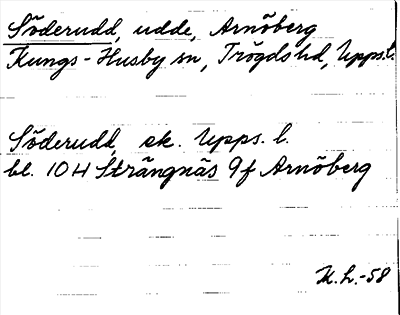 Söderudd, udde, Arnöberg
Kungs-Husby sn, Trögds hd, Upps. l.
Söderudd, ek. Upps. l.
bl. 10H Strängnäs 9f Arnöberg
K.L.-58